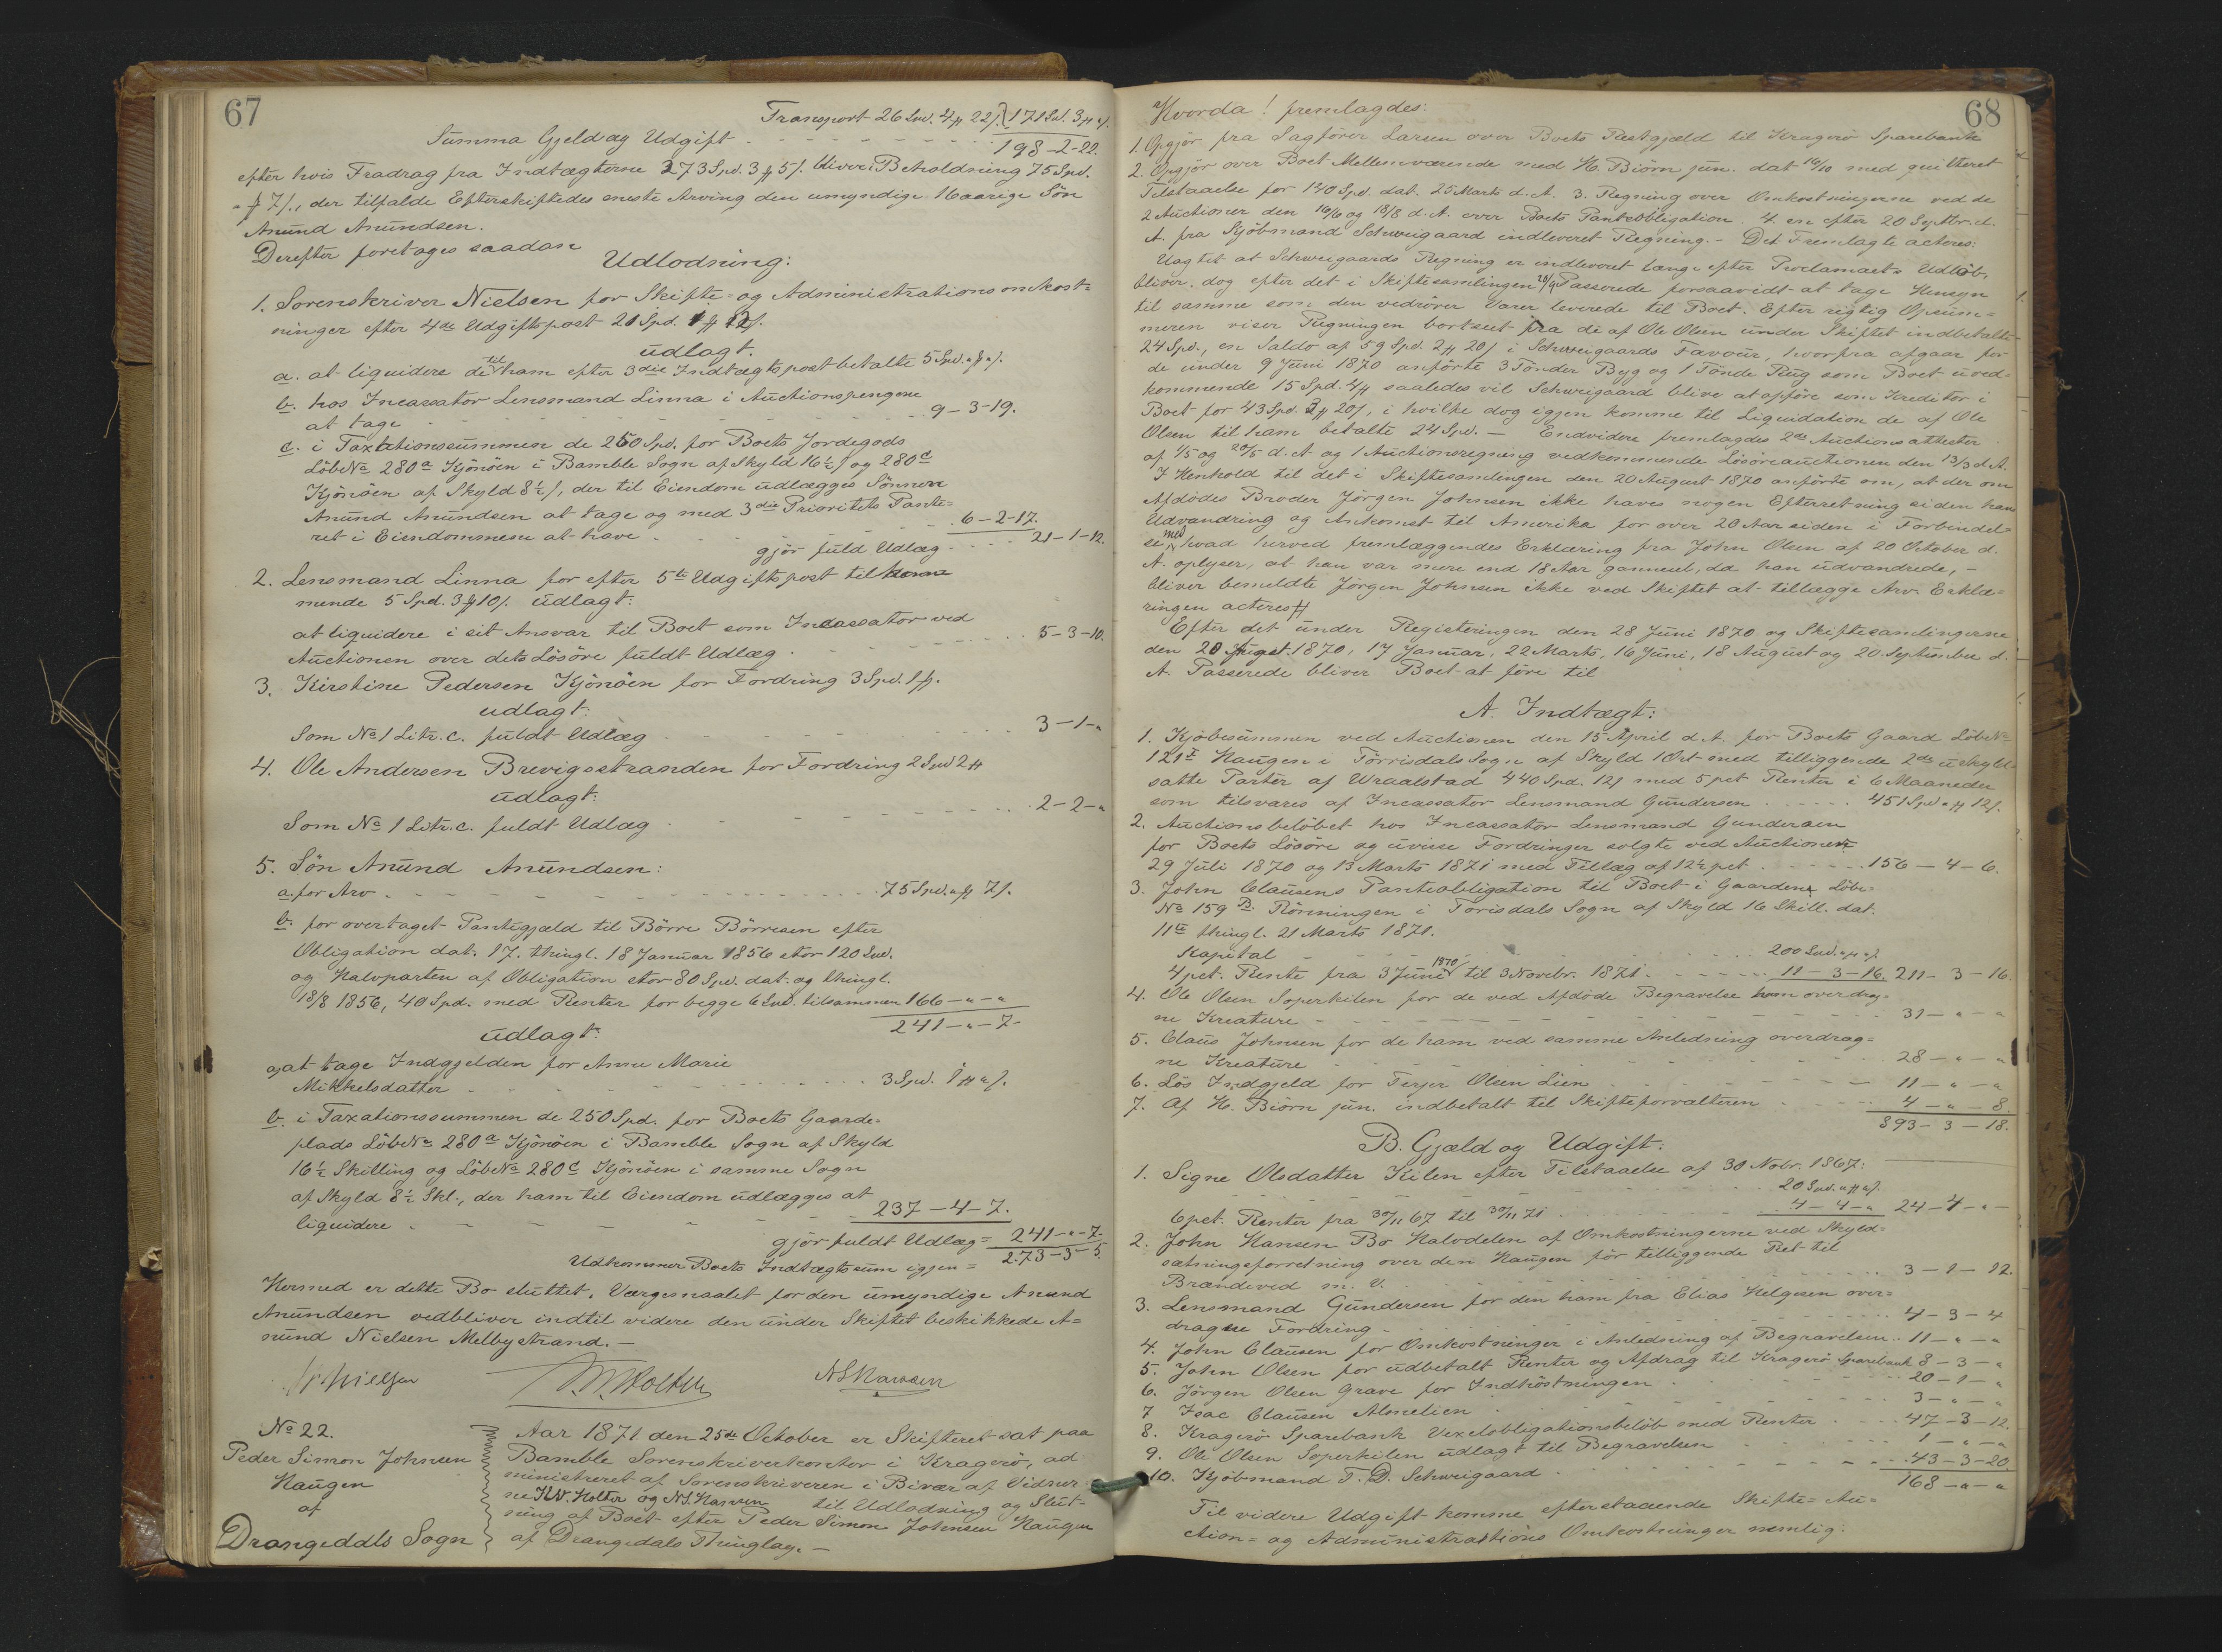 67
Transport 26 Spd. 4 ℔ 22 ſ. 171 Spd. 3 ℔ " ſ.
Summa Gjeld og Udgift 198-2-22.
efter hvis Fradrag fra Indtægterne 273 Spd. 3 ℔ 5 ſ. bliver i Beholdning 75 Spd.
" ℔ 7 ſ., der tilfalde Efterskiftedes eneste Arving den umyndige 16aarige Søn
Anund Anundsen.
Derefter foretages saadan
Udlodning:
1. Sorenskriver Nielsen for Skifte- og Administrationsomkost=
ninger efter 4de Udgiftspost 21 Spd. 1 ℔ 12 ſ.
udlagt.
a. at liquidere de til ham efter 3die Indtægtspost betalte 5 Spd. " ℔ " ſ.
b. hos Incassator Lensmand Linna i Auctionspengene
at tage 9-3-19.
c. i Taxtationssummen de 250 Spd. for Boets Jordegods
Løbe No 280a Kjönöen i Bamble Sogn af Skyld 16½ ſ og 280c
Kjönöen af Skyld 8½ ſ, der til Eiendom udlægges Sønnen
Anund Anundsen at tage og med 3die Prioritets Pante=
ret i Eiendommene at have 6-2-17.
gjør fuld Udlæg 21-1-12.
2. Lensmand Linna for efter 5te Udgiftspost tilkom=
mende 5 Spd. 3 ℔ 10 ſ. udlagt:
at liquidere i sit Ansvar til Boet som Incassator ved
Auctionen over dets Løsøre fuldt Udlæg 5-3-10.
3. Kirstine Pedersen Kjönöen for Fordring 3 Spd. 1 ℔.
udlagt:
Som No 1 Litr. c. fuldt Udlæg 3-1-"
4. Ole Andersen Brevigsstranden for Fordring 2 Spd 2 ℔
udlagt:
Som No 1 Litr. c. fuldt Udlæg 2-2-"
5. Søn Anund Anundsen:
a. for Arv 75 Spd. " ℔ 7 ſ.
b. for overtaget Pantegjæld til Börre Börresen efter
Obligation dat. 17. thingl. 18 Januar 1856 stor 120 Spd.
og Halvparten af Obligation stor 80 Spd. dat. og thingl.
18/8 1856, 40 Spd. med Renter for begge 6 Spd. tilsammen 166-"-"
241-"-7-
udlagt:
a, at tage Indgjelden for Anne Marie
Mikkelsdatter 3 Spd. 1 ℔ " ſ.
b. i Taxationssummen de 250 Spd. for Boets Gaarde=
plads Løbe No 280a Kjönöen i Bamble Sogn af Skyld
16½ Skilling og Løbe No 280c Kjönöen i samme Sogn
af Skyld 8½ Skl., der ham til Eiendom udlægges at
liquidere 237-4-7.
gjør fuldt Udlæg = 241-"-7-
Udkommer Boets Indtægtssum igjen = 273-3-5.
Hermed er dette Bo sluttet. Værgemaalet for den umyndige Anund
Anundsen vedbliver indtil videre den under Skiftet beskikkede A=
nund Nielsen Melbystrand.-
Nielsen Holter NS Hansen
No 22.
Peder Simon Johnsen
Haugen
af
Drangedals Sogn
Aar 1871 den 25de October er Skifteret sat paa
Bamble Sorenskriverkontor i Kragerö, ad
ministreret af Sorenskriveren i Bivær af Vidner
ne H.W. Holter og N.S. Hansen til Udlodning og Slut=
ning af Boet efter Peder Simon Johnsen Haugen
af Drangedals Thinglag.-
68
Hvorda! fremlagdes:
1. Opgjør fra Sagfører Larsen over Boets Restgjæld til Kragerö Sparebank
2. Opgjör over Boet Mellemværende med H. Biörn jun. dat 16/10 med quitteret
Tilstaaelse for 140 Spd. dat. 25 Marts d. A. 3. Regning over Omkostningerne ved de
2 Auctioner den 16/6 og 18/8 d. A. over Boets Panteobligation. 4. en efter 20 Septbr. d.
A. fra Kjöbmand Schweigaard indleveret Regning.- Det Fremlagte acteres:
Uagtet at Schweigaards Regning er indleveret længe efter Proclamaets Udlöb,
bliver dog efter det i Skiftesamlingen 20/9 Passerede forsaavidt at tage Hensyn
til samme som den vedrörer Varer leverede til Boet. Efter rigtig Opsum=
meren viser Regningen bortseet fra de af Ole Olsen under Skiftet indbetalte
24 Spd., en Saldo af 59 Spd. 2 ℔ 20 ſ i Schweigaards Favour, hvorfra afgaar for
de under 9 Juni 1870 anförte 3 Tönder Byg og 1 Tönde Rug som Boet uved=
kommende 15 Spd. 4 ℔ saaledes vil Schweigaard blive at opföre som Kreditor i
Boet for 43 Spd. 3 ℔ 20 ſ, i hvilke dog igjen komme til Liquidation de af Ole
Olsen til ham betalte 24 Spd.- Endvidere fremlagdes 2de Auctionsattester
af 1/5 og 20/5 d. A og 1 Auctionsregning vedkommende Lösöreauctionen den 13/3 d. A.
I Henhold til det i Skiftesamlingen den 20 August 1870 anförte om, at der om
Afdödes Broder Jörgen Johnsen ikke haves nogen Efterretning siden hans
Udvandring og Ankomst til Amerika for over 20 Aar siden i Forbindel=
se med hvad herved fremlæggendes Erklæring fra John Olsen af 20 October d.
A. oplyser, at han var mere end 18 Aar gammel, da han udvandrede,-
bliver bemeldte Jörgen Johnsen ikke ved Skiftet at tillægge Arv. Erklæ=
ringen acteres
Efter det under Registeringen den 28 Juni 1870 og Skiftesamlingerne
den 20 August 1870, 17 Januar, 22 Marts, 16 Juni, 18 August og 20. September d.
A. Passerede bliver Boet at före til
A. Indtægt:
1. Kjöbesummen ved Auctionen den 15 April d. A. for Boets Gaard Löbe No
121 Haugen i Törrisdals Sogn af Skyld 1 Ort med tilliggende 2de uskyld
satte Parter af Wraalstad 440 Spd. 12 ſ med 5 pct Renter i 6 Maaneder
som tilsvares af Incassator Lensmand Gundersen 451 Spd " ℔ 12 ſ.
2. Auctionsbelöbet hos Incassator Lensmand Gundersen
for Boets Lösöre og uvisse Fordringer solgte ved Auctionen
29 Juli 1870 og 13 Marts 1871 med Tillæg af 12½ pct 156-4-6.
3. John Clausens Panteobligation til Boet i Gaarden Löbe
No 159 B. Rönningen i Torisdals Sogn af Skyld 16 Skill. dat.
11te thingl. 21 Marts 1871.
Kapital 200 Spd. " ℔ " ſ.
4 pct. Rente fra 3 Juni 1870 til 3 Novebr. 1871 11-3-16. 211-3-16.
4. Ole Olsen Soperkilen for de ved Afdöde Begravelse ham overdrag=
ne Kreature 31-"-"
5. Claus Johnsen for de ham ved samme Anledning overdrag=
ne Kreature 28-"-"
6. Lös Indgjeld for Terjer Olsen Lien 11-"-"
7. Af H. Biörn jun. indbetalt til Skifteforvalteren 4-"-8.
893-3-18.
B. Gjæld og Udgift:
1. Signe Olsdatter Kilen efter Tilstaaelse af 30 Nobr. 1867:
20 Spd. " ℔ " ſ.
6 pct. Renter fra 30/11 67 til 30/11 71 4-4-" 24-4-"-
2. John Hansen Bö Halvdelen af Omkostningerne ved Skyld=
sætningsforretning over den Haugen för tilliggende Ret til
Brændeved m. v. 3-1-12.
3. Lensmand Gundersen for den ham fra Elias Helgesen over=
dragne Fordring 4-3-4
4. John Clausen for Omkostninger i Anledning af Begravelsen 11-"-"
5. John Olsen for udbetalt Renter og Afdrag til Kragerö Sparebank 8-3-"
6. Jörgen Olsen Grave for Indhöstningen 20-1-"
7 Isac Clausen Almelien 3-"-"
8. Kragerö Sparebank Vexelobligationsbelöb med Renter 47-3-12.
9. Ole Olsen Soperkilen udlagt til Begravelsen 1-"-"
10. Kjöbmand T. D. Schweigaard 43-3-20.
168-"-"
Til videre Udgift komme efterstaaende Skifte= Au=
ction= og Administrations Omkostninger nemlig: